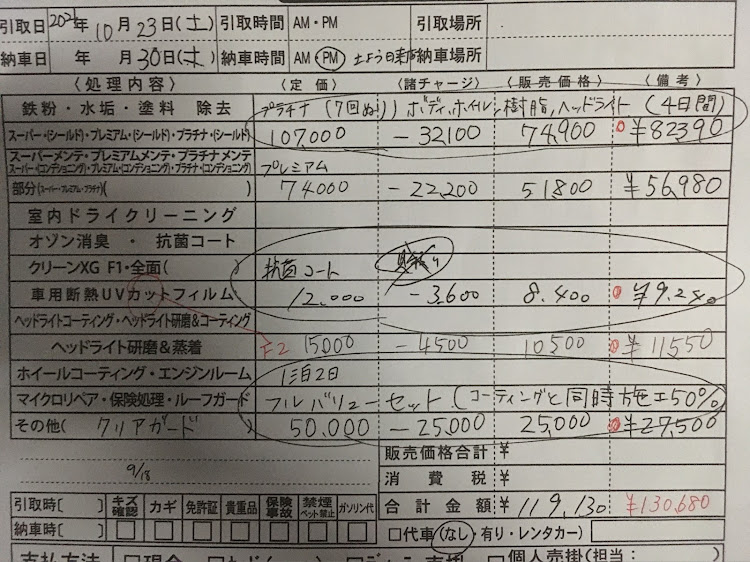 引取日 2021年 10月 23日(土) 引取時間 AM・PM 引取場所
納車日 年 月 30日(土) 納車時間 AM・PM 土よう日 納車場所
〈処理内容〉 〈定価〉 〈諸チャージ〉 〈販売価格〉 〈備考〉
鉄粉・水垢・塗料 除去 プラチナ (7回ぬり) ボディ、ホイル、樹脂、ヘッドライト (4日間)
スーパー・(シールド)・プレミアム・(シールド)・プラチナ・(シールド) 107,000 -32100 74,900 ¥82390
スーパーメンテ・プレミアムメンテ・プラチナ メンテ
スーパー・(コンディショニング)・プレミアム・(コンディショニング)・プラチナ・(コンディショニング) プレミアム
部分(スーパー・プレミアム・プラチナ)( ) 74000 -22,200 51800 ¥56,980
室内ドライクリーニング
オゾン消臭 ・ 抗菌コート
クリーンXG F1・全面( ) 抗菌コート
車用断熱UVカットフィルム 12.000 -3,600 8.400 ¥9.240
ヘッドライトコーティング・ヘッドライト研磨&コーティング
ヘッドライト研磨&蒸着 F2 15,000 -4500 10500 ¥11,550
ホイールコーティング・エンジンルーム 1泊2日
マイクロリペア・保険処理・ルーフガード フルバリューセット (コーティングと同時施工50%)
その他( クリアガード ) 50.000 -25,000 25,000 ¥27,500
販売価格合計 ¥
9/18
消費税 ¥
引取時[ ] キズ確認 カギ 免許証 貴重品 保険事故 禁煙ペット禁止 ガソリン代 合計金額 ¥ 119,130 ¥130,680
納車時[ ] □ □ □ □ □ □ □ □代車(なし・有り・レンタカー)
支払方法 □現金 □個人売掛(担当: )